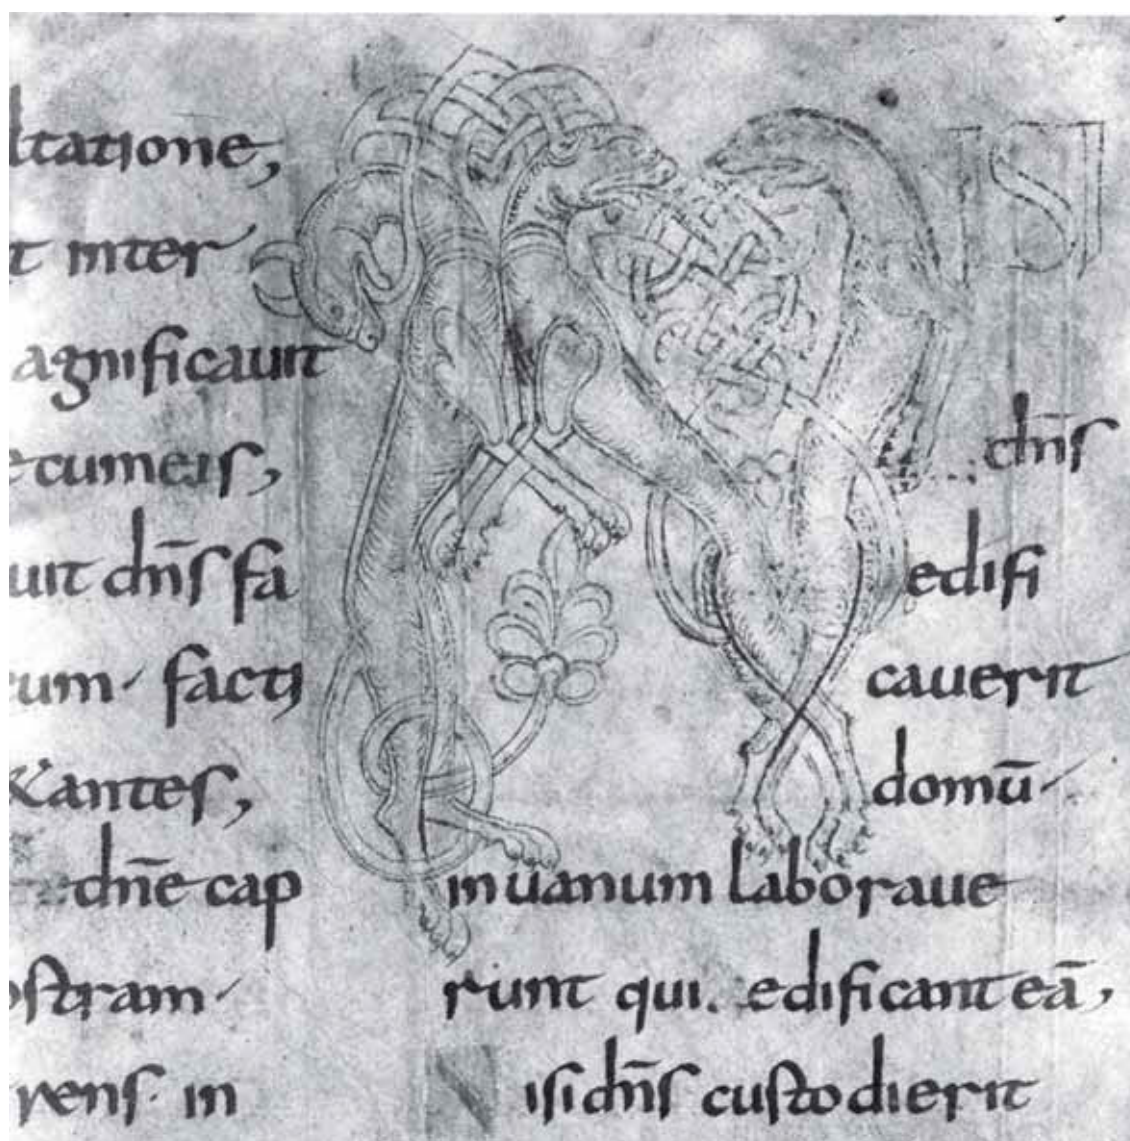 ltatione,
t inter
agnificauit
ecumeis,
uit dn̄s fa
um· facti
&antes,
dn̄e cap
ostram·
rens· in
NISI
dn̄s
edifi
cauerit
domū·
inuanum laboraue
runt qui. edificant eā,
N isi dn̄s custodierit